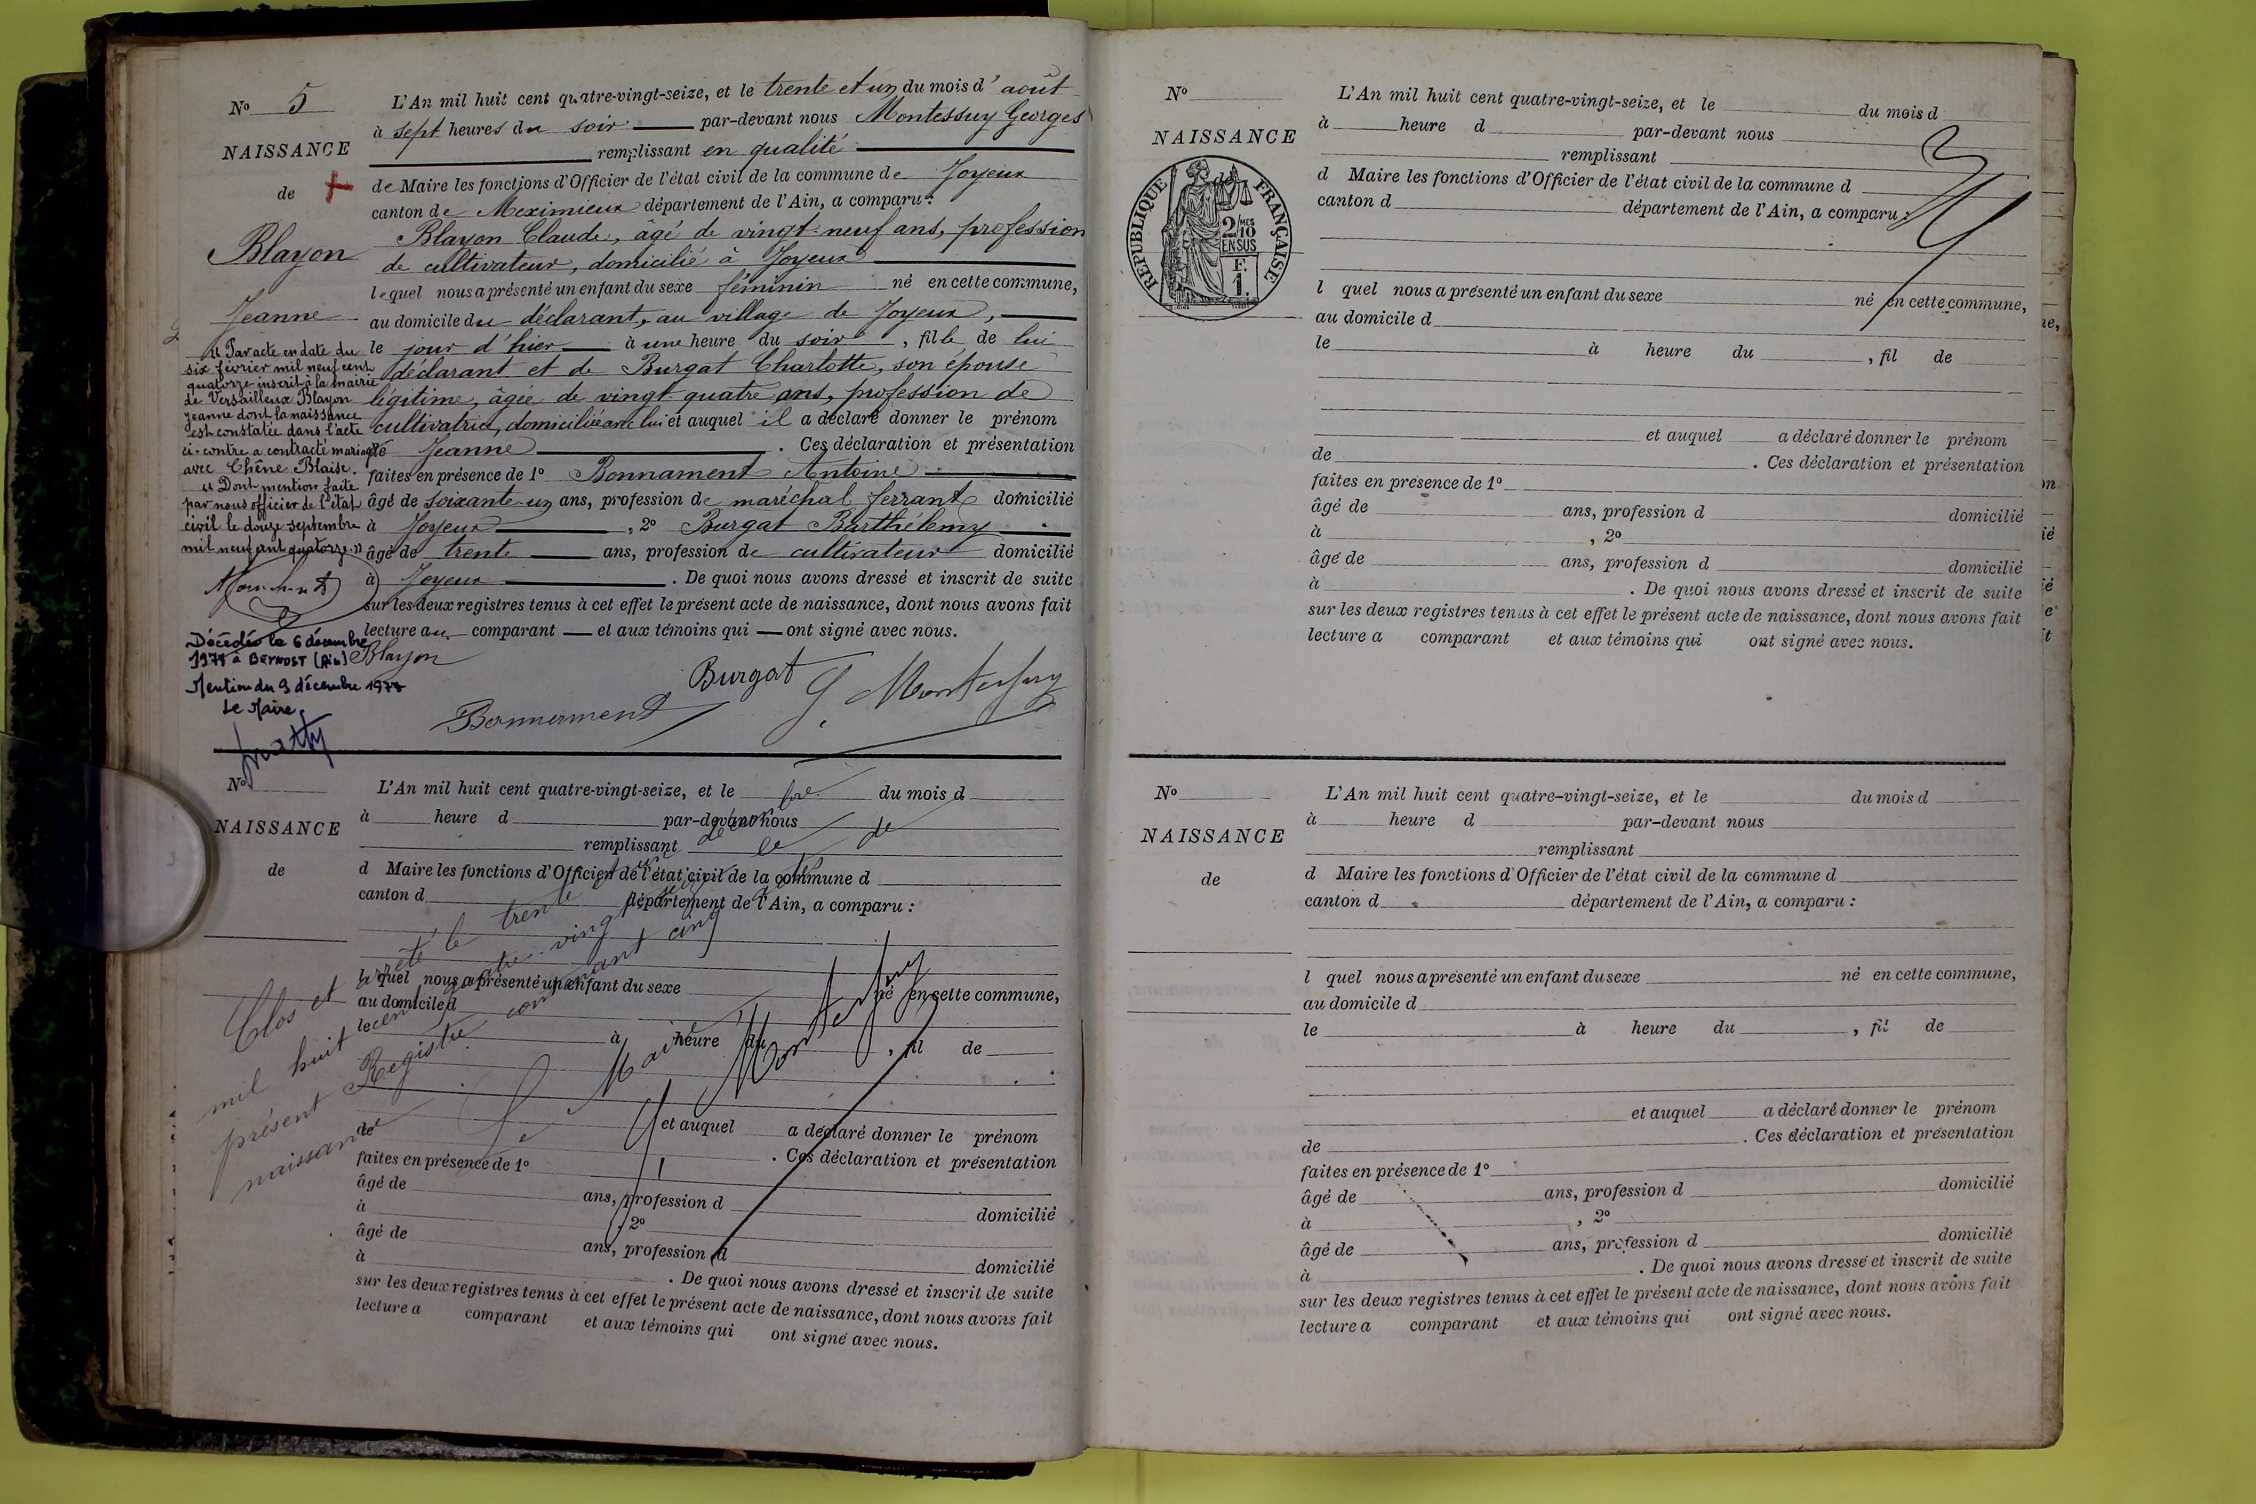 N° 5
NAISSANCE
de
Blayon
Jeanne
L'An mil huit cent quatre-vingt-seize, et le trente et un du mois d'août
à sept heures du soir par-devant nous Montessuy Georges
remplissant en qualité
de Maire les fonctions d'Officier de l'état civil de la commune de Joyeux
canton de Meximieux département de l'Ain, a comparu :
Blayon Claude, âgé de vingt-neuf ans, profession
de cultivateur, domicilié à Joyeux
lequel nous a présenté un enfant du sexe féminin né en cette commune,
au domicile du déclarant, au village de Joyeux,
le jour d'hier à une heure du soir, fille de lui
déclarant et de Burgat Charlotte, son épouse
légitime, âgée de vingt-quatre ans, profession de
cultivatrice, domiciliée avec lui et auquel il a déclaré donner le prénom
de Jeanne. Ces déclaration et présentation
faites en présence de 1° Bonnament Antoine
âgé de soixante-un ans, profession de maréchal ferrant domicilié
à Joyeux, 2° Burgat Barthélemy
âgé de trente ans, profession de cultivateur domicilié
à Joyeux. De quoi nous avons dressé et inscrit de suite
sur les deux registres tenus à cet effet le présent acte de naissance, dont nous avons fait
lecture au comparant et aux témoins qui ont signé avec nous.
Blayon
Burgat
G. Montessuy
Bonnament
" Par acte en date du
six février mil neuf cent
quatorze inscrit à la mairie
de Versailleux Blayon
Jeanne dont la naissance
est constatée dans l'acte
ci-contre a contracté mariage
avec Chêne Blaise.
" Dont mention faite
par nous officier de l'état
civil le douze septembre
mil neuf cent quatorze. "
Décédée le 6 décembre
1978 à BEYNOST (Ain)
Mention du 9 décembre 1978
Le Maire,
N°
NAISSANCE
de
L'An mil huit cent quatre-vingt-seize, et le du mois d
à heure d par-devant nous
remplissant
d Maire les fonctions d'Officier de l'état civil de la commune d
canton d département de l'Ain, a comparu :
l quel nous a présenté un enfant du sexe né en cette commune,
au domicile d
le à heure du , fil de
et auquel a déclaré donner le prénom
de . Ces déclaration et présentation
faites en présence de 1°
âgé de ans, profession d domicilié
à , 2°
âgé de ans, profession d domicilié
à . De quoi nous avons dressé et inscrit de suite
sur les deux registres tenus à cet effet le présent acte de naissance, dont nous avons fait
lecture a comparant et aux témoins qui ont signé avec nous.
Clos et arrêté le trente et un décembre
mil huit cent quatre-vingt seize le
présent Registre contenant cinq
naissance
Le Maire
G Montessuy
N°
NAISSANCE
RÉPUBLIQUE FRANÇAISE
2/10 MES
EN SUS
F.
1.
L'An mil huit cent quatre-vingt-seize, et le du mois d
à heure d par-devant nous
remplissant
d Maire les fonctions d'Officier de l'état civil de la commune d
canton d département de l'Ain, a comparu :
l quel nous a présenté un enfant du sexe né en cette commune,
au domicile d
le à heure du , fil de
et auquel a déclaré donner le prénom
de . Ces déclaration et présentation
faites en présence de 1°
âgé de ans, profession d domicilié
à , 2°
âgé de ans, profession d domicilié
à . De quoi nous avons dressé et inscrit de suite
sur les deux registres tenus à cet effet le présent acte de naissance, dont nous avons fait
lecture a comparant et aux témoins qui ont signé avec nous.
N°
NAISSANCE
de
L'An mil huit cent quatre-vingt-seize, et le du mois d
à heure d par-devant nous
remplissant
d Maire les fonctions d'Officier de l'état civil de la commune d
canton d département de l'Ain, a comparu :
l quel nous a présenté un enfant du sexe né en cette commune,
au domicile d
le à heure du , fil de
et auquel a déclaré donner le prénom
de . Ces déclaration et présentation
faites en présence de 1°
âgé de ans, profession d domicilié
à , 2°
âgé de ans, profession d domicilié
à . De quoi nous avons dressé et inscrit de suite
sur les deux registres tenus à cet effet le présent acte de naissance, dont nous avons fait
lecture a comparant et aux témoins qui ont signé avec nous.